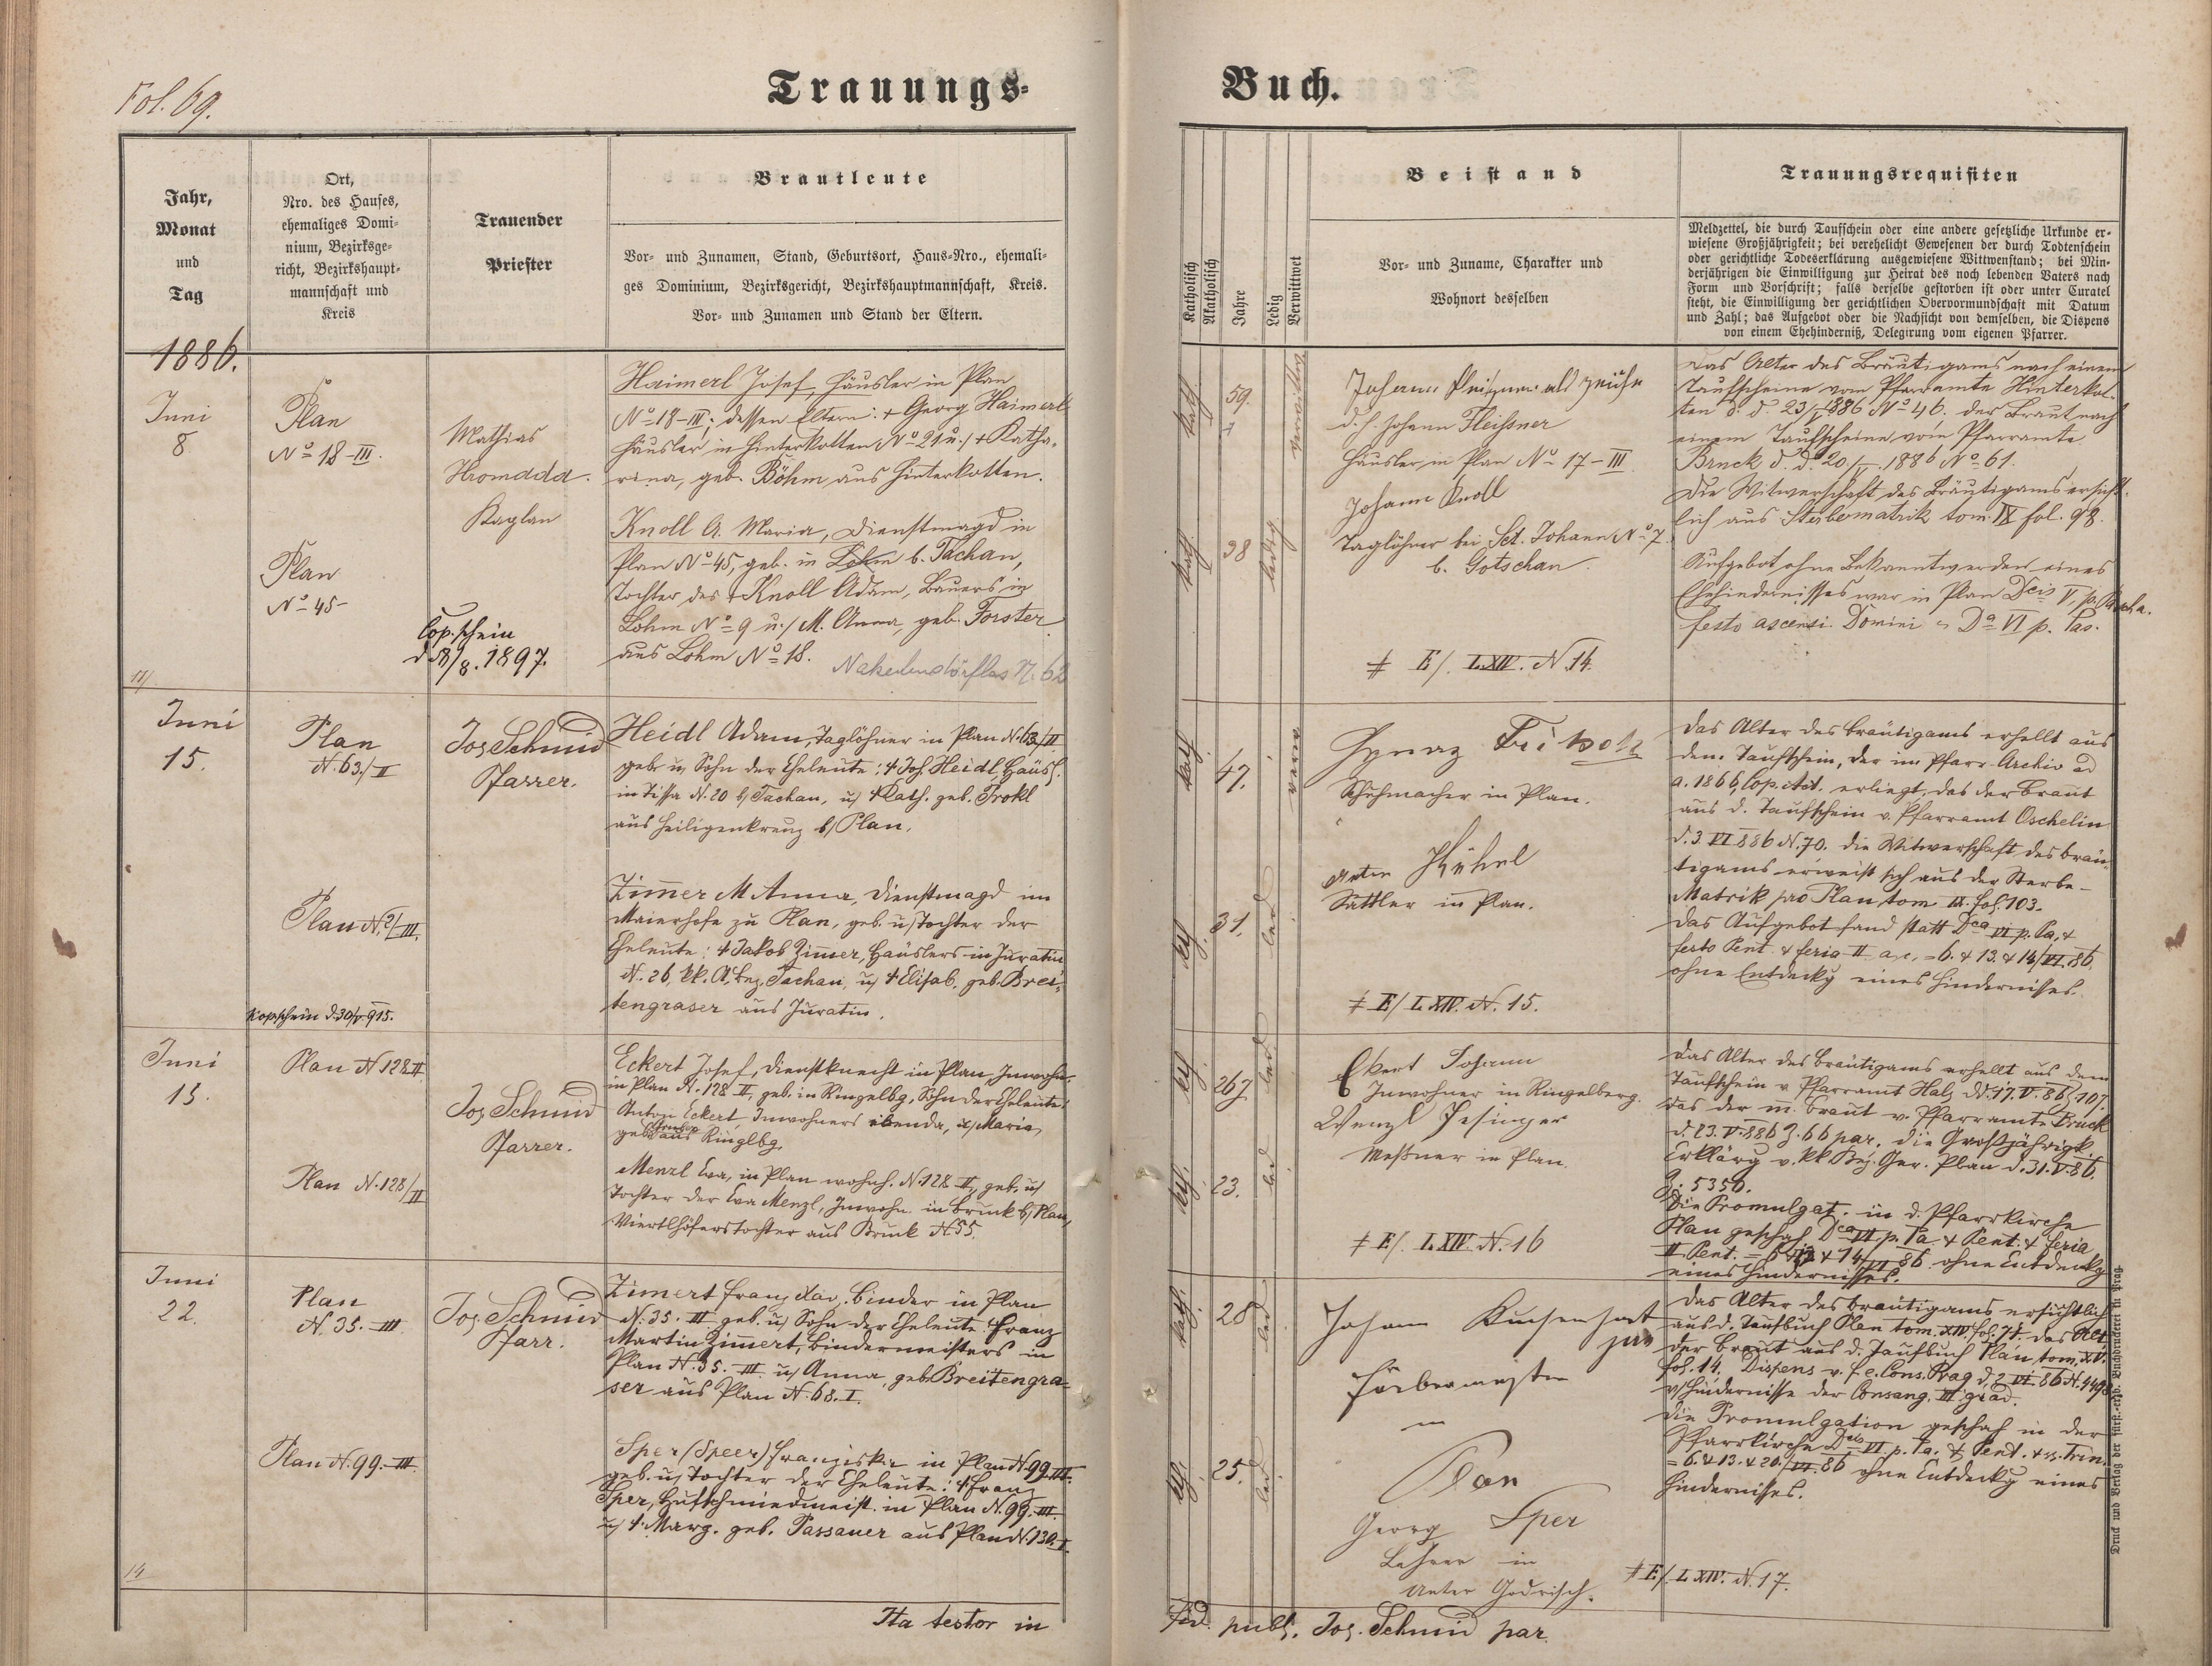 Fol. 69.
Trauungs-
Buch.
Jahr,
Monat
und
Tag
Ort,
Nro. des Hauses,
ehemaliges Domi-
nium, Bezirksge-
richt, Bezirkshaupt-
mannschaft und
Kreis
Trauender
Priester
Brautleute
Vor- und Zunamen, Stand, Geburtsort, Haus-Nro., ehemali-
ges Dominium, Bezirksgericht, Bezirkshauptmannschaft, Kreis.
Vor- und Zunamen und Stand der Eltern.
Katholisch
Akatholisch
Jahre
Ledig
Verwittwet
Beistand
Vor- und Zuname, Charakter und
Wohnort desselben
Trauungsrequisiten
Meldzettel, die durch Taufschein oder eine andere gesetzliche Urkunde er-
wiesene Großjährigkeit; bei verehelicht Gewesenen der durch Todtenschein
oder gerichtliche Todeserklärung ausgewiesene Wittwenstand; bei Min-
derjährigen die Einwilligung zur Heirat des noch lebenden Vaters nach
Form und Vorschrift; falls derselbe gestorben ist oder unter Curatel
steht, die Einwilligung der gerichtlichen Obervormundschaft mit Datum
und Zahl; das Aufgebot oder die Nachsicht von demselben, die Dispens
von einem Ehehinderniß, Delegirung vom eigenen Pfarrer.
1886.
Juni
8
Plan
No 18-III.
Plan
No 45
Mathias
Hromada
Kaplan
Cop.schein
d. 8/8. 1897.
Haimerl Josef, Häusler in Plan
No 18-III; dessen Eltern: + Georg Haimerl
Häusler in Hinterkotten No 21 u./ + Katha-
rina, geb. Böhm aus Hinterkotten.
Knoll A. Maria, Dienstmagd in
Plan No 45, geb. in Lohm b. Tachau,
Tochter des + Knoll Adam, Bauers in
Lohm No 9 u./ M. Anna, geb. Forster
aus Lohm No 18.
Nakedendörflas N. 62
kath.
59.
verwittw.
kath.
38
ledig
Johann als Zeuge
d. h. Johann Fleißner
Häusler in Plan No 17-III
Johann Knoll
Taglöhner bei Sct. Johann No 7
b. Gotschau.
# E/. LXIV. N. 14.
Das Alter des Bräutigams nach einem
Taufscheine vom Pfarramte Hinterkot-
ten d. d. 23/ 1886 No 46. der Braut nach
einem Taufscheine vom Pfarramte
Bruck d. d. 20./V. 1886 No 61.
Die Witwerschaft des Bräutigams ersicht-
lich aus Sterbematrik tom. IX fol. 98.
Aufgebot ohne Bekanntwerden eines
Ehehindernisses war in Plan Dcis V. p. Pascha.
festo ascensi. Domini & Da VI p. Pas.
Juni
15.
Plan
N. 63./II
Plan N. 2/III.
Kopschein d. 30/V 915.
Jos Schmid
Pfarrer.
Heidl Adam, Taglöhner in Plan N. 63/II
geb. u/ Sohn der Eheleute: + Joh. Heidl, Häusl.
in Tissa N. 20 b/ Tachau, u/ + Kath. geb. Prokl
aus Heiligenkreuz b/ Plan.
Zimmer M Anna, Dienstmagd im
Maierhofe zu Plan, geb. u/ Tochter der
Eheleute: + Jakob Zimmer, Häuslers in Juratin
N. 26, kk. A. Bez. Tachau, u/ + Elisab. geb. Brei-
tengraser aus Juratin.
kath.
47.
verw
kth.
31.
led
Ignaz
Schuhmacher in Plan.
Anton Kühnl
Sattler in Plan.
# E/ LXIV. N. 15.
Das Alter des Bräutigams erhellt aus
dem Taufschein, der im Pfarr-Archiv ad
a. 1866, Cop. Act. erliegt, das der Braut
aus d. Taufschein v. Pfarramt Oschelin
d. 3 VI 886 N. 70. Die Witwerschaft des Bräu-
tigams erweist sich aus der Sterbe-
Matrik pro Plan tom IX. fol. 103.
Das Aufgebot fand statt Dca VI p. Pa, &
festo Pent. & feria II a.c. = 6. & 13. & 14/VI. 86,
ohne Entdeckg eines Hindernisses.
Juni
15.
Plan N 128 II
Plan N. 128/II
Jos Schmid
Pfarrer.
Eckert Josef, Dienstknecht in Plan, Inwohn.
in Plan N. 128 II, geb. in Ringelbg, Sohn der Eheleute:
Anton Eckert, Inwohners ebenda, u/ Maria,
geb. aus Ringlbg.
Menzl Eva, in Plan wohnh. N. 128 II, geb. u/
Tochter der Eva Menzl, Inwohn. in Bruck b/ Plan,
Viertlhöferstochter aus Bruck N 55.
kth.
26
led
kth.
23.
led
Ekert Johann
Inwohner in Ringelberg.
Wenzl
Meßner in Plan.
# E/. LXIV. N. 16
Das Alter des Bräutigams erhellt aus dem
Taufschein v. Pfarramt Hals dd. 17. V. 86, 107.
das der m. Braut v. Pfarramte Bruck
d. 23. V. 886 Z. 66 par. Die Großjährigk.
Erklärg v. kk Bez. Ger. Plan d. 31. V. 86.
Z. 5350.
Die Promulgat. in d. Pfarrkirche
Plan geschah Dca VI p. Pa & Pent. & feria
II Pent. = 6 & 13 & 14/VI 86 ohne Entdeckg
eines Hindernisses.
Juni
22.
Plan
N. 35.-III
Plan N. 99.-III.
Jos Schmid
Pfarr.
Zimert Franz Xav., Binder in Plan
N. 35. III geb. u/ Sohn der Eheleute Franz
Martin Zimert, Bindermeisters in
Plan N. 35.-III. u/ Anna, geb. Breitengra-
ser aus Plan N. 68. I.
Sper (Speer) Franziska in Plan N 99 III.
geb. u/ Tochter der Eheleute: + Franz
Sper, Hufschmiedmeist. in Plan N. 99.-III.
u/ + Marg. geb. Passauer aus Plan N. 130 I.
kath.
28
led
kth.
25.
led
Johann
jun
Färbermeister
in
Plan
Georg Sper
Lehrer in
Unter Godrisch.
# E/. LXIV. N. 17.
Das Alter des Bräutigams ersichtlich
aus d. Taufbuch Plan tom. XIV fol. 71. das Alt.
der Braut aus d. Taufbuch Plan, tom. XV.
fol. 14. Dispens v. f. e. Cons. Prag d. 2 VI. 86 N. 4498
v/ Hindernisse der Consang. III grad.
Die Promulgation geschah in der
Pfarrkirche Dcis VI. p. Pa. & Pent. & ss. Trin.
= 6. & 13. & 20./VI. 86 ohne Entdeckg eines
Hindernisses.
Ita testor in
fid. publ. Jos. Schmid par.
Druck und Verlag der fürst.-erzb. Buchdruckerei in Prag.